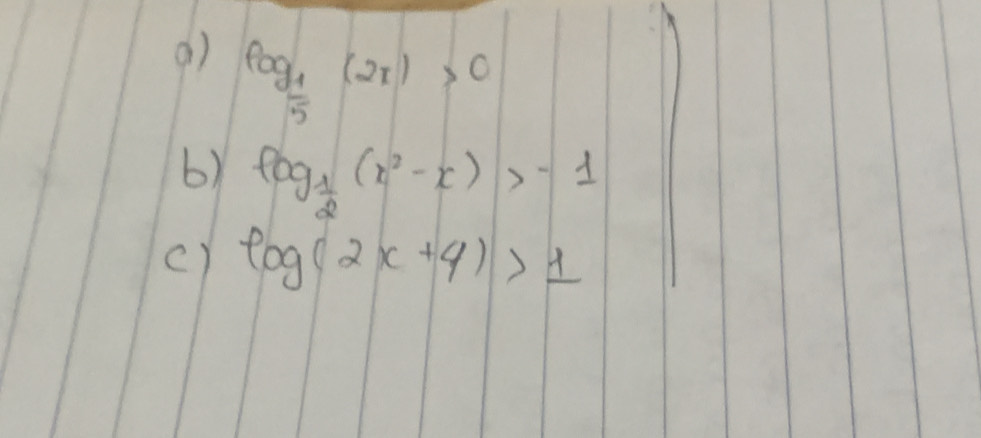 a) log_{1/5} (2x) > 0
b) log_{1/2} (x² - x) > - 1
c) log( 2x + 4) > 1